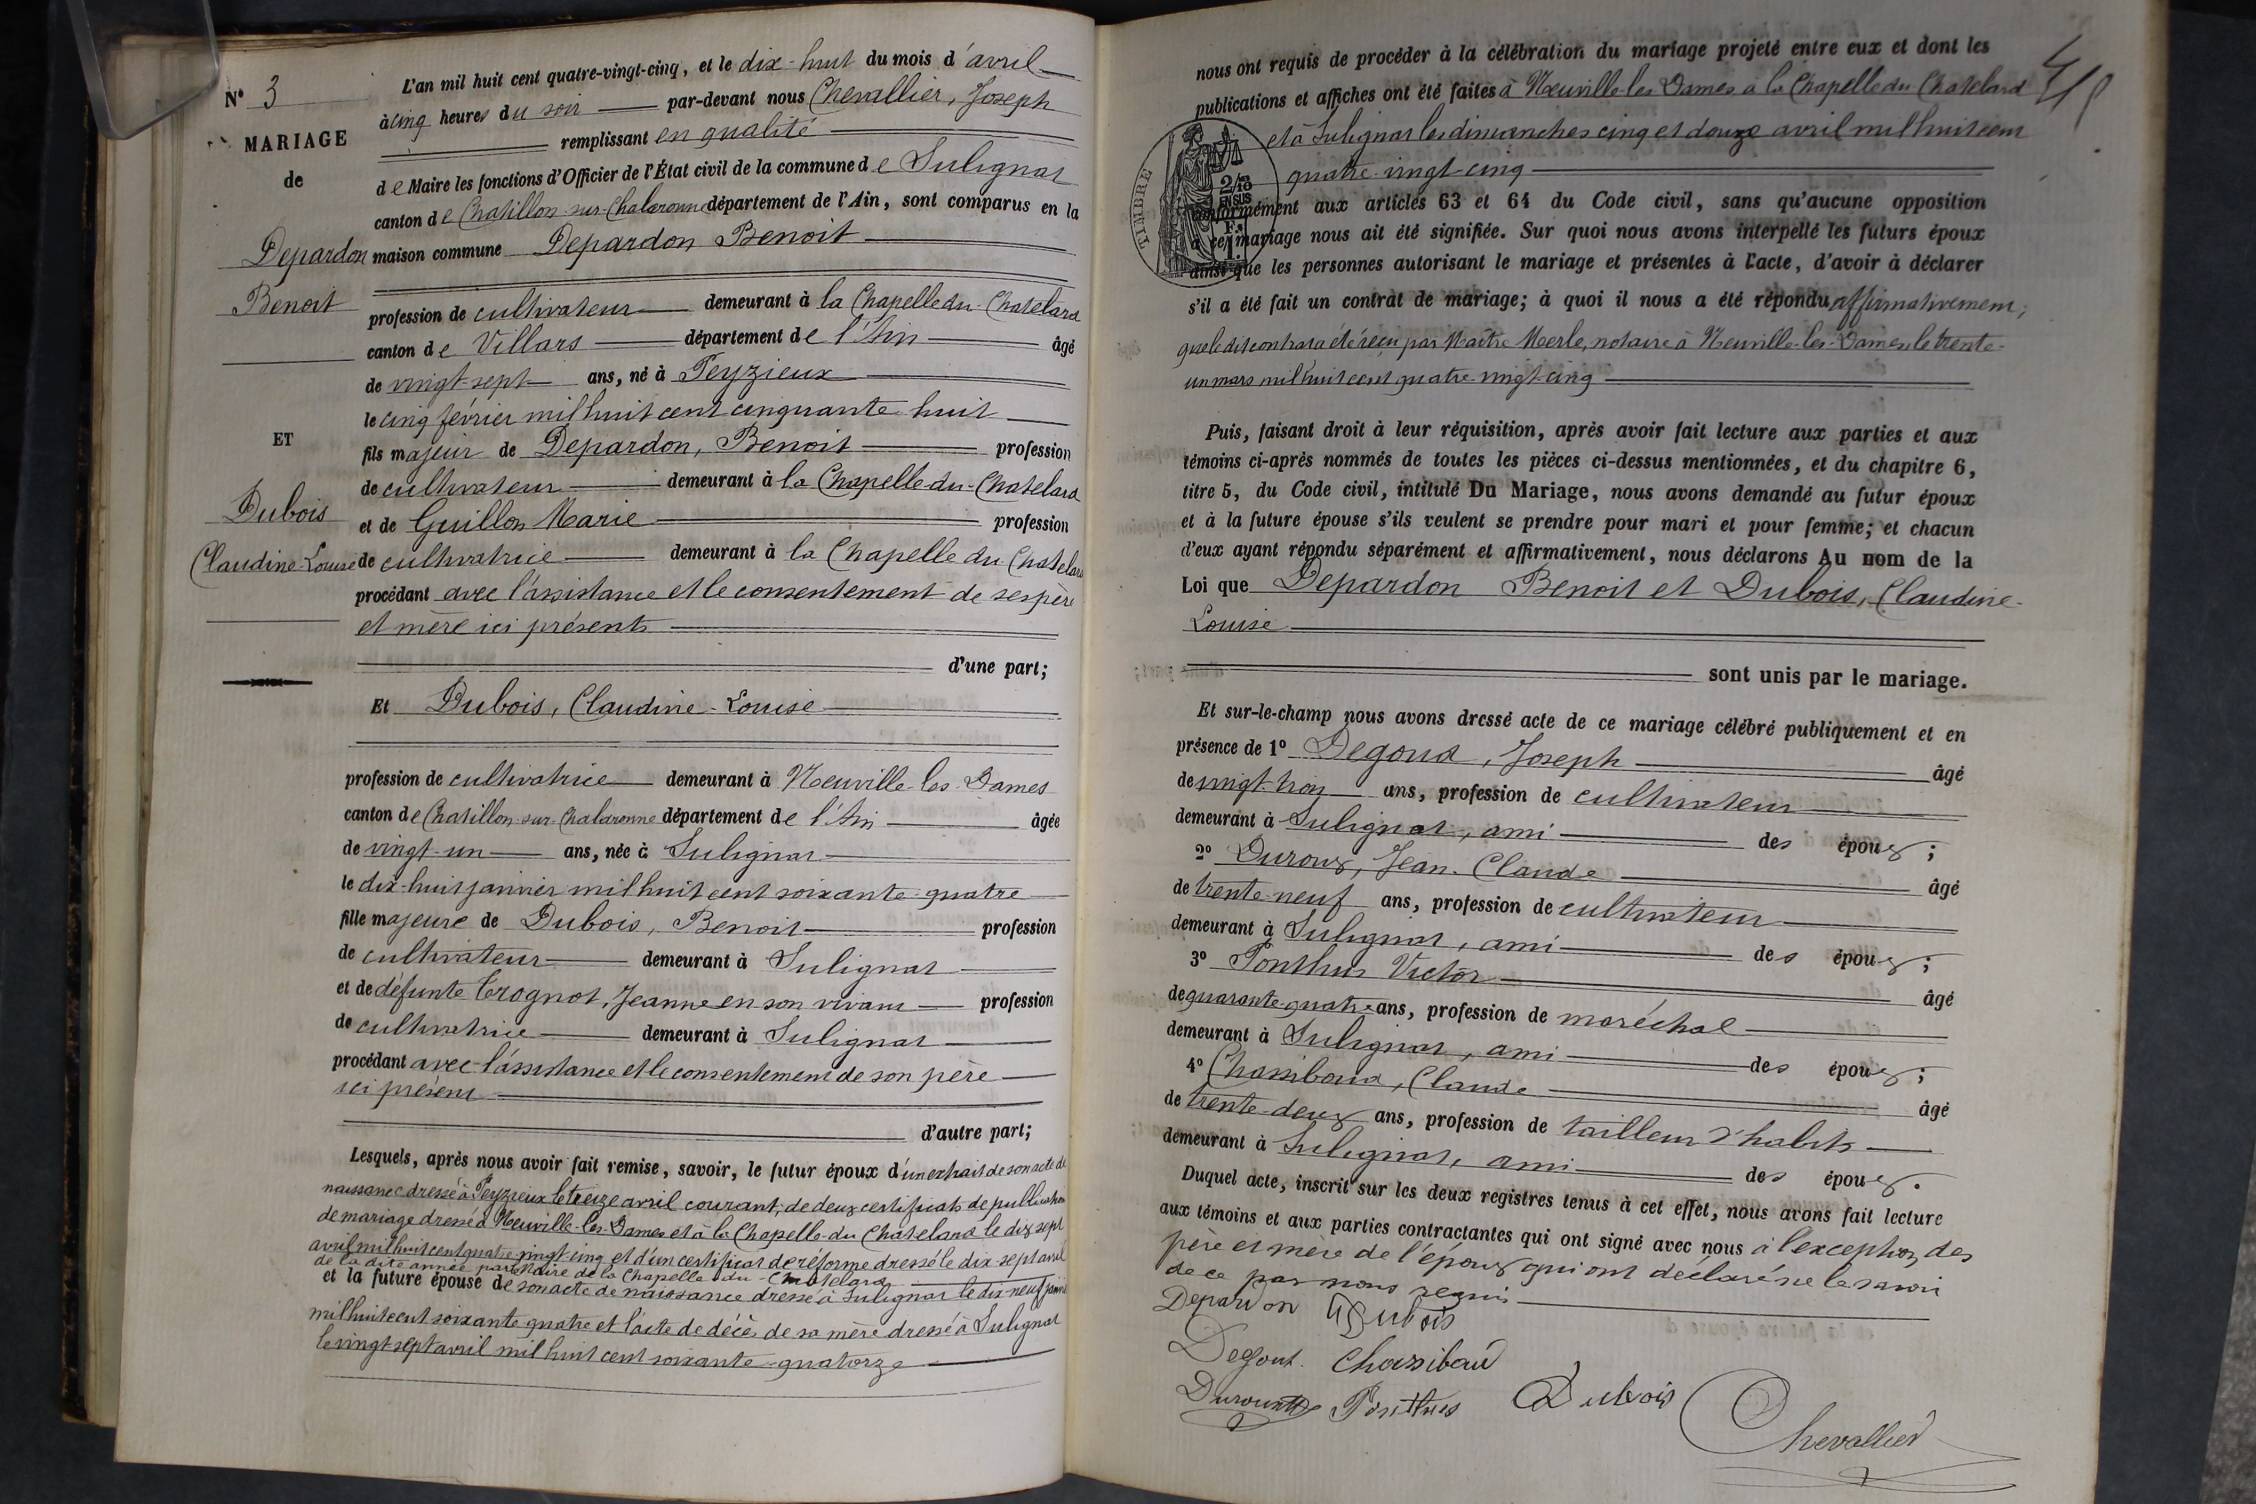 N° 3
MARIAGE
de
Depardon
Benoit
ET
Dubois
Claudine-Louise
L'an mil huit cent quatre-vingt-cinq, et le dix-huit du mois d'avril
à cinq heures du soir par-devant nous Chevallier, Joseph
remplissant en qualité
de Maire les fonctions d'Officier de l'État civil de la commune de Sulignat
canton de Chatillon-sur-Chalaronne département de l'Ain, sont comparus en la
maison commune Depardon Benoit
profession de cultivateur demeurant à la Chapelle du-Chatelard
canton de Villars département de l'Ain âgé
de vingt-sept ans, né à Peyzieux
le cinq février mil huit cent cinquante huit
fils majeur de Depardon, Benoit profession
de cultivateur demeurant à la Chapelle-du-Chatelard
et de Guillon Marie profession
de cultivatrice demeurant à la Chapelle du Chatelard
procédant avec l'assistance et le consentement de ses père
et mère ici présents
d'une part;
Et Dubois, Claudine-Louise
profession de cultivatrice demeurant à Neuville-les-Dames
canton de Chatillon-sur-Chalaronne département de l'Ain âgée
de vingt-un ans, née à Sulignat
le dix-huit janvier mil huit cent soixante-quatre
fille majeure de Dubois, Benoit profession
de cultivateur demeurant à Sulignat
et de défunte Trognot, Jeanne en son vivant profession
de cultivatrice demeurant à Sulignat
procédant avec l'assistance et le consentement de son père
ici présent
d'autre part;
Lesquels, après nous avoir fait remise, savoir, le futur époux d'un extrait de son acte de
naissance dressé à Peyzieux le treize avril courant, de deux certificats de publication
de mariage dressé à Neuville-les-Dames et à la Chapelle-du Chatelard le dix sept
avril mil huit cent quatre-vingt-cinq et d'un certificat de réforme dressé le dix-sept avril
de la dite année par Maire de la Chapelle-du-Chatelard
et la future épouse de son acte de naissance dressé à Sulignat le dix-neuf janvier
mil huit cent soixante quatre et l'acte de décès de sa mère dressé à Sulignat
le vingt sept avril mil huit cent soixante-quatorze
nous ont requis de procéder à la célébration du mariage projeté entre eux et dont les
publications et affiches ont été faites à Neuville-les-Dames à la Chapelle du Chatelard
et à Sulignat les dimanches cinq et douze avril mil huit cent
quatre-vingt-cinq
TIMBRE
2/10
EN SUS
conformément aux articles 63 et 64 du Code civil, sans qu'aucune opposition
à ce mariage nous ait été signifiée. Sur quoi nous avons interpellé les futurs époux
ainsi que les personnes autorisant le mariage et présentes à l'acte, d'avoir à déclarer
s'il a été fait un contrat de mariage; à quoi il nous a été répondu affirmativement;
que le dit contrat a été reçu par Maître Merle, notaire à Neuville-les-Dames le trente-
un mars mil huit cent quatre-vingt-cinq
Puis, faisant droit à leur réquisition, après avoir fait lecture aux parties et aux
témoins ci-après nommés de toutes les pièces ci-dessus mentionnées, et du chapitre 6,
titre 5, du Code civil, intitulé Du Mariage, nous avons demandé au futur époux
et à la future épouse s'ils veulent se prendre pour mari et pour femme; et chacun
d'eux ayant répondu séparément et affirmativement, nous déclarons Au nom de la
Loi que Depardon Benoit et Dubois, Claudine-
Louise
sont unis par le mariage.
Et sur-le-champ nous avons dressé acte de ce mariage célébré publiquement et en
présence de 1° Degoud, Joseph âgé
de vingt-trois ans, profession de cultivateur
demeurant à Sulignat, ami des époux;
2° Duroux, Jean-Claude âgé
de trente-neuf ans, profession de cultivateur
demeurant à Sulignat, ami des époux;
3° Ponthus Victor âgé
de quarante-quatre ans, profession de maréchal
demeurant à Sulignat, ami des époux;
4° Chassiboud, Claude âgé
de trente-deux ans, profession de tailleur d'habits
demeurant à Sulignat, ami des époux.
Duquel acte, inscrit sur les deux registres tenus à cet effet, nous avons fait lecture
aux témoins et aux parties contractantes qui ont signé avec nous à l'exception des
père et mère de l'époux qui ont déclaré ne le savoir
de ce par nous requis
Depardon Dubois
Degout Chassiboud
Duroux Ponthus Dubois
Chevallier